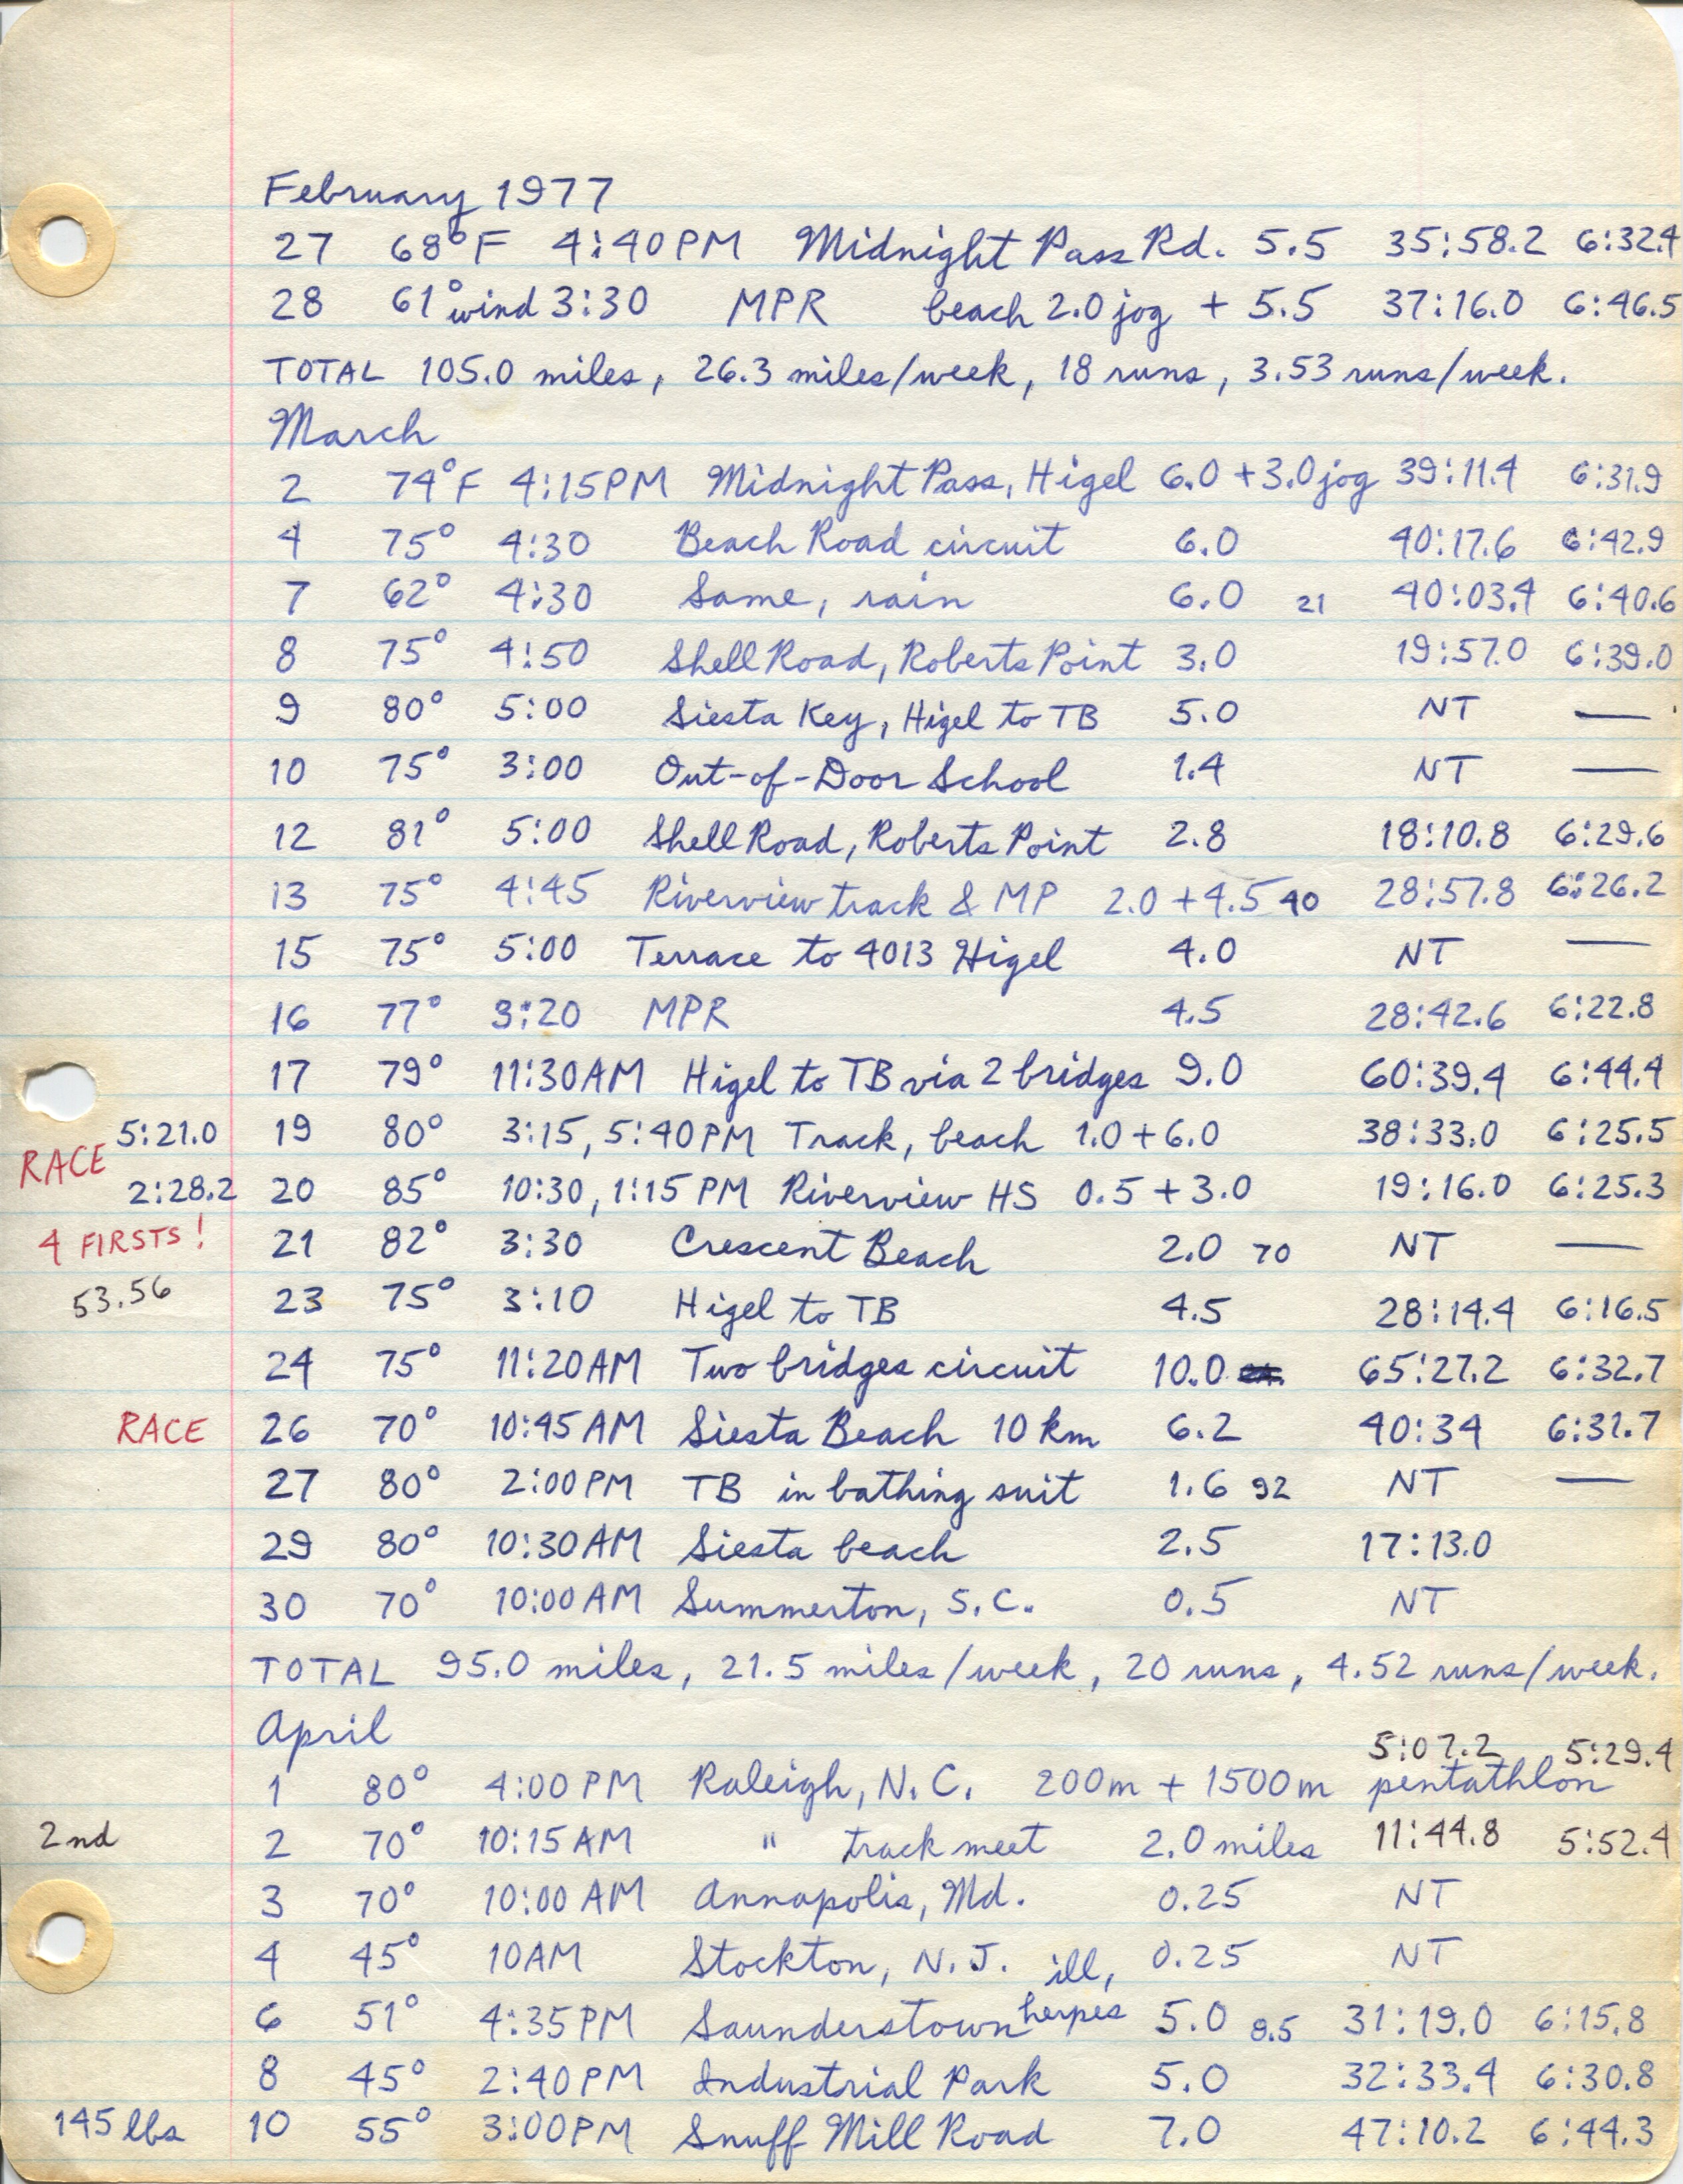 February 1977
27 68°F 4:40PM Midnight Pass Rd. 5.5 35:58.2 6:32.4
28 61° wind 3:30 MPR beach 2.0 jog + 5.5 37:16.0 6:46.5
TOTAL 105.0 miles, 26.3 miles/week, 18 runs, 3.53 runs/week.
March
2 74°F 4:15PM Midnight Pass, Higel 6.0 + 3.0 jog 39:11.4 6:31.9
4 75° 4:30 Beach Road circuit 6.0 40:17.6 6:42.9
7 62° 4:30 Same, rain 6.0 21 40:03.4 6:40.6
8 75° 4:50 Shell Road, Roberts Point 3.0 19:57.0 6:39.0
9 80° 5:00 Siesta Key, Higel to TB 5.0 NT —
10 75° 3:00 Out-of-Door School 1.4 NT —
12 81° 5:00 Shell Road, Roberts Point 2.8 18:10.8 6:29.6
13 75° 4:45 Riverview track & MP 2.0 + 4.5 40 28:57.8 6:26.2
15 75° 5:00 Terrace to 4013 Higel 4.0 NT —
16 77° 3:20 MPR 4.5 28:42.6 6:22.8
17 79° 11:30AM Higel to TB via 2 bridges 9.0 60:39.4 6:44.4
RACE 5:21.0 19 80° 3:15, 5:40PM Track, beach 1.0 + 6.0 38:33.0 6:25.5
2:28.2 20 85° 10:30, 1:15 PM Riverview HS 0.5 + 3.0 19:16.0 6:25.3
4 FIRSTS! 21 82° 3:30 Crescent Beach 2.0 70 NT —
53.56 23 75° 3:10 Higel to TB 4.5 28:14.4 6:16.5
24 75° 11:20AM Two bridges circuit 10.0 65:27.2 6:32.7
RACE 26 70° 10:45AM Siesta Beach 10 km 6.2 40:34 6:31.7
27 80° 2:00PM TB in bathing suit 1.6 92 NT —
29 80° 10:30AM Siesta beach 2.5 17:13.0
30 70° 10:00AM Summerton, S.C. 0.5 NT
TOTAL 95.0 miles, 21.5 miles/week, 20 runs, 4.52 runs/week.
April
5:07.2 5:29.4
1 80° 4:00PM Raleigh, N.C. 200m + 1500m pentathlon
2nd 2 70° 10:15AM " track meet 2.0 miles 11:44.8 5:52.4
3 70° 10:00AM Annapolis, Md. 0.25 NT
4 45° 10AM Stockton, N.J. ill, 0.25 NT
6 51° 4:35PM Saunderstown herpes 5.0 9.5 31:19.0 6:15.8
8 45° 2:40PM Industrial Park 5.0 32:33.4 6:30.8
145 lbs 10 55° 3:00PM Snuff Mill Road 7.0 47:10.2 6:44.3